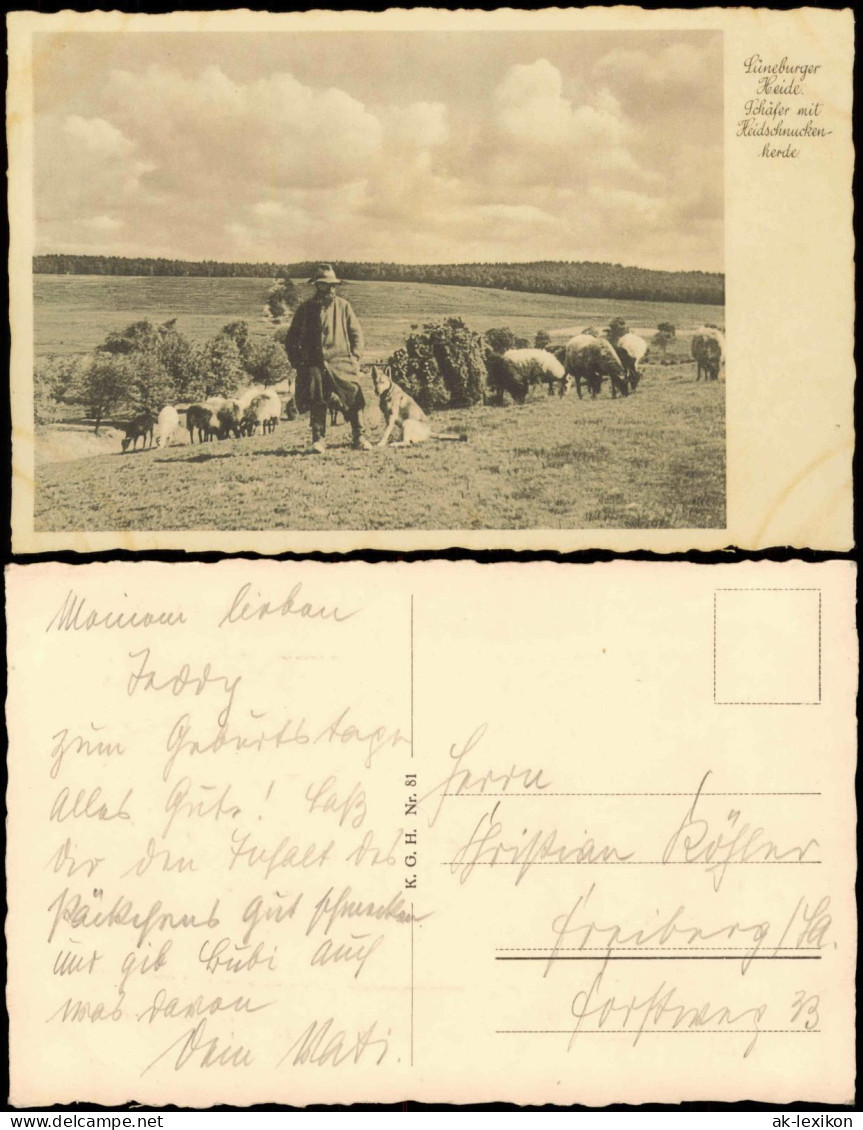 Lüneburger
Heide.
Schäfer mit
Heidschnucken-
herde
Meinem lieben
Teddy
zum Geburtstage
Alles Gute! Laß
Dir den Inhalt des
Päckchens gut schmecken
und gib Bubi auch
was davon
Dein Vati.
K. G. H. Nr. 81
Herrn
Christian Köhler
Freiberg/Sa.
Forstweg
www.ak-ansichtskarten.de
ak-lexikon